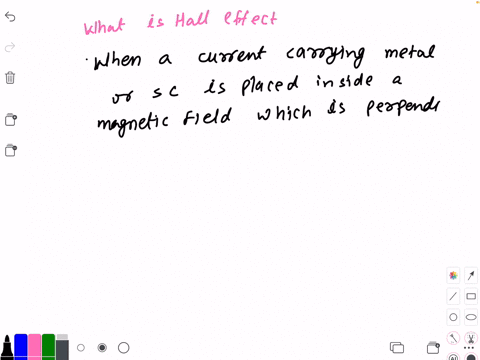 What is Hall Effect
· When a current carrying metal
or sc is placed inside a
magnetic Field which is perpend